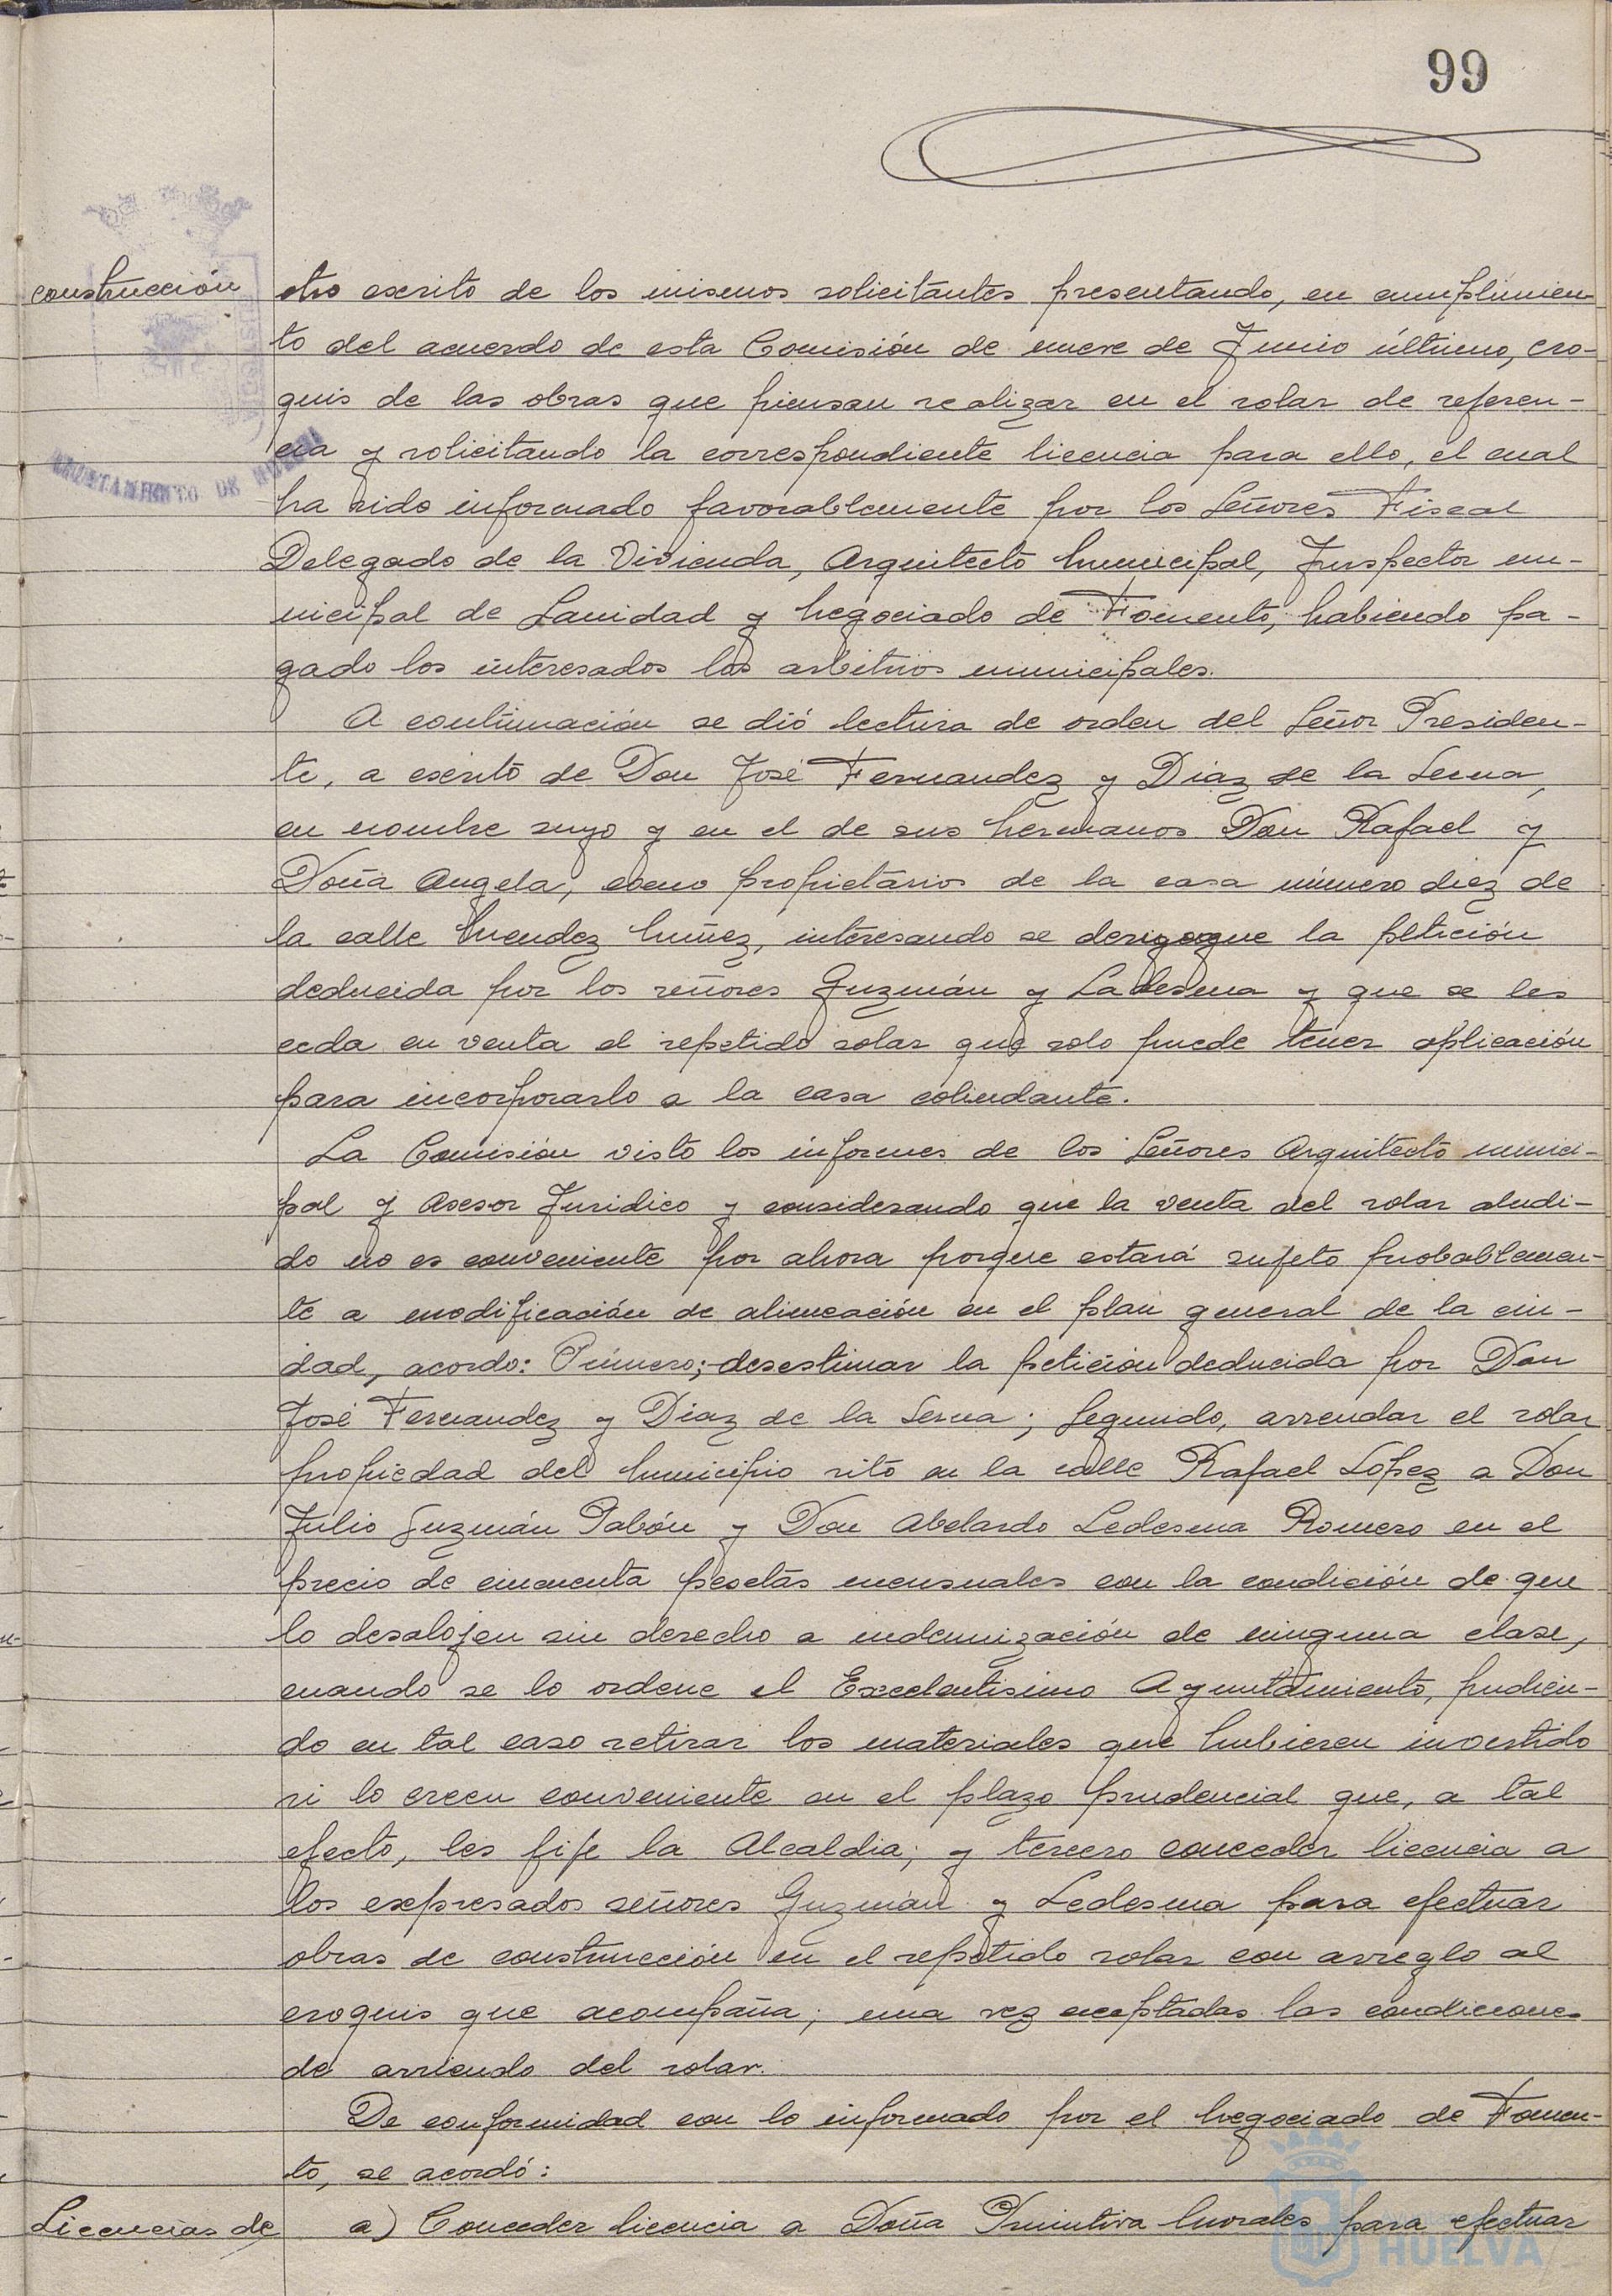 99
construcción otro escrito de los mismos solicitantes presentando, en cumplimien-
to del acuerdo de esta Comisión de nueve de Junio último, cro-
quis de las obras que piensan realizar en el solar de referen-
cia y solicitando la correspondiente licencia para ello, el cual
AYUNTAMIENTO DE HUELVA
ha sido informado favorablemente por los Señores Fiscal
Delegado de la Vivienda, Arquitecto Municipal, Inspector mu-
nicipal de Sanidad y Negociado de Fomento, habiendo pa-
gado los interesados los arbitrios municipales.
A continuación se dió lectura de orden del Señor Presiden-
te, a escrito de Don José Fernandez y Diaz de la Serna,
en nombre suyo y en el de sus hermanos Don Rafael y
Doña Angela, como propietarios de la casa número diez de
la calle Mendez Nuñez, interesando se derogogue la petición
deducida por los señores Guzmán y Ladesma y que se les
ceda en venta el repetido solar que solo puede tener aplicación
para incorporarlo a la casa colindante.
La Comisión visto los informes de los Señores Arquitecto munici-
pal y Asesor Juridico y considerando que la venta del solar aludi-
do no es conveniente por ahora porque estará sujeto probablemen-
te a modificación de alineación en el plan general de la ciu-
dad, acordo: Primero;-desestimar la petición deducida por Don
José Fernandez y Diaz de la Serna; Segundo, arrendar el solar
propiedad del Municipio sito en la calle Rafael López a Don
Julio Guzmán Pabón y Don Abelardo Ledesma Romero en el
precio de cincuenta pesetas mensuales con la condición de que
lo desalojen sin derecho a indemnización de ninguna clase,
cuando se lo ordene el Excelentisimo Ayuntamiento, pudien-
do en tal caso retirar los materiales que hubieren invertido
si lo creen conveniente en el plazo prudencial que, a tal
efecto, les fije la Alcaldia; y tercero conceder licencia a
los expresados señores Guzmán y Ledesma para efectuar
obras de construcción en el repetido solar con arreglo al
croquis que acompaña; una vez aceptadas las condiciones
de arriendo del solar.
De conformidad con lo informado por el Negociado de Fomen-
to, se acordó:
Licencias de a) Conceder licencia a Doña Primitiva Morales para efectuar
HUELVA